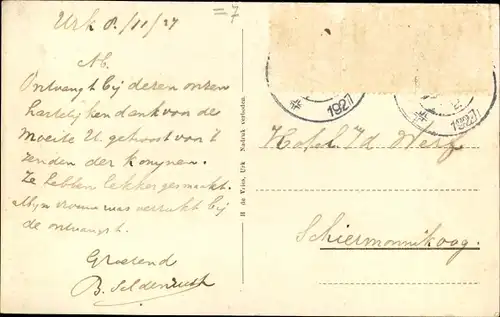 =7
Urk 8/11/27
M.
Ontvangt bij dezen onzen
hartelijken dank voor de
moeite U. getroost voor 't
zenden der konijnen.
Ze hebben lekker gesmaakt.
mijn vrouw was verrukt bij
de ontvangst.
Groetend
B.
H. de Vries, Urk Nadruk verboden.
1927
1927
Hotel v/d Werf
Schiermonnikoog.